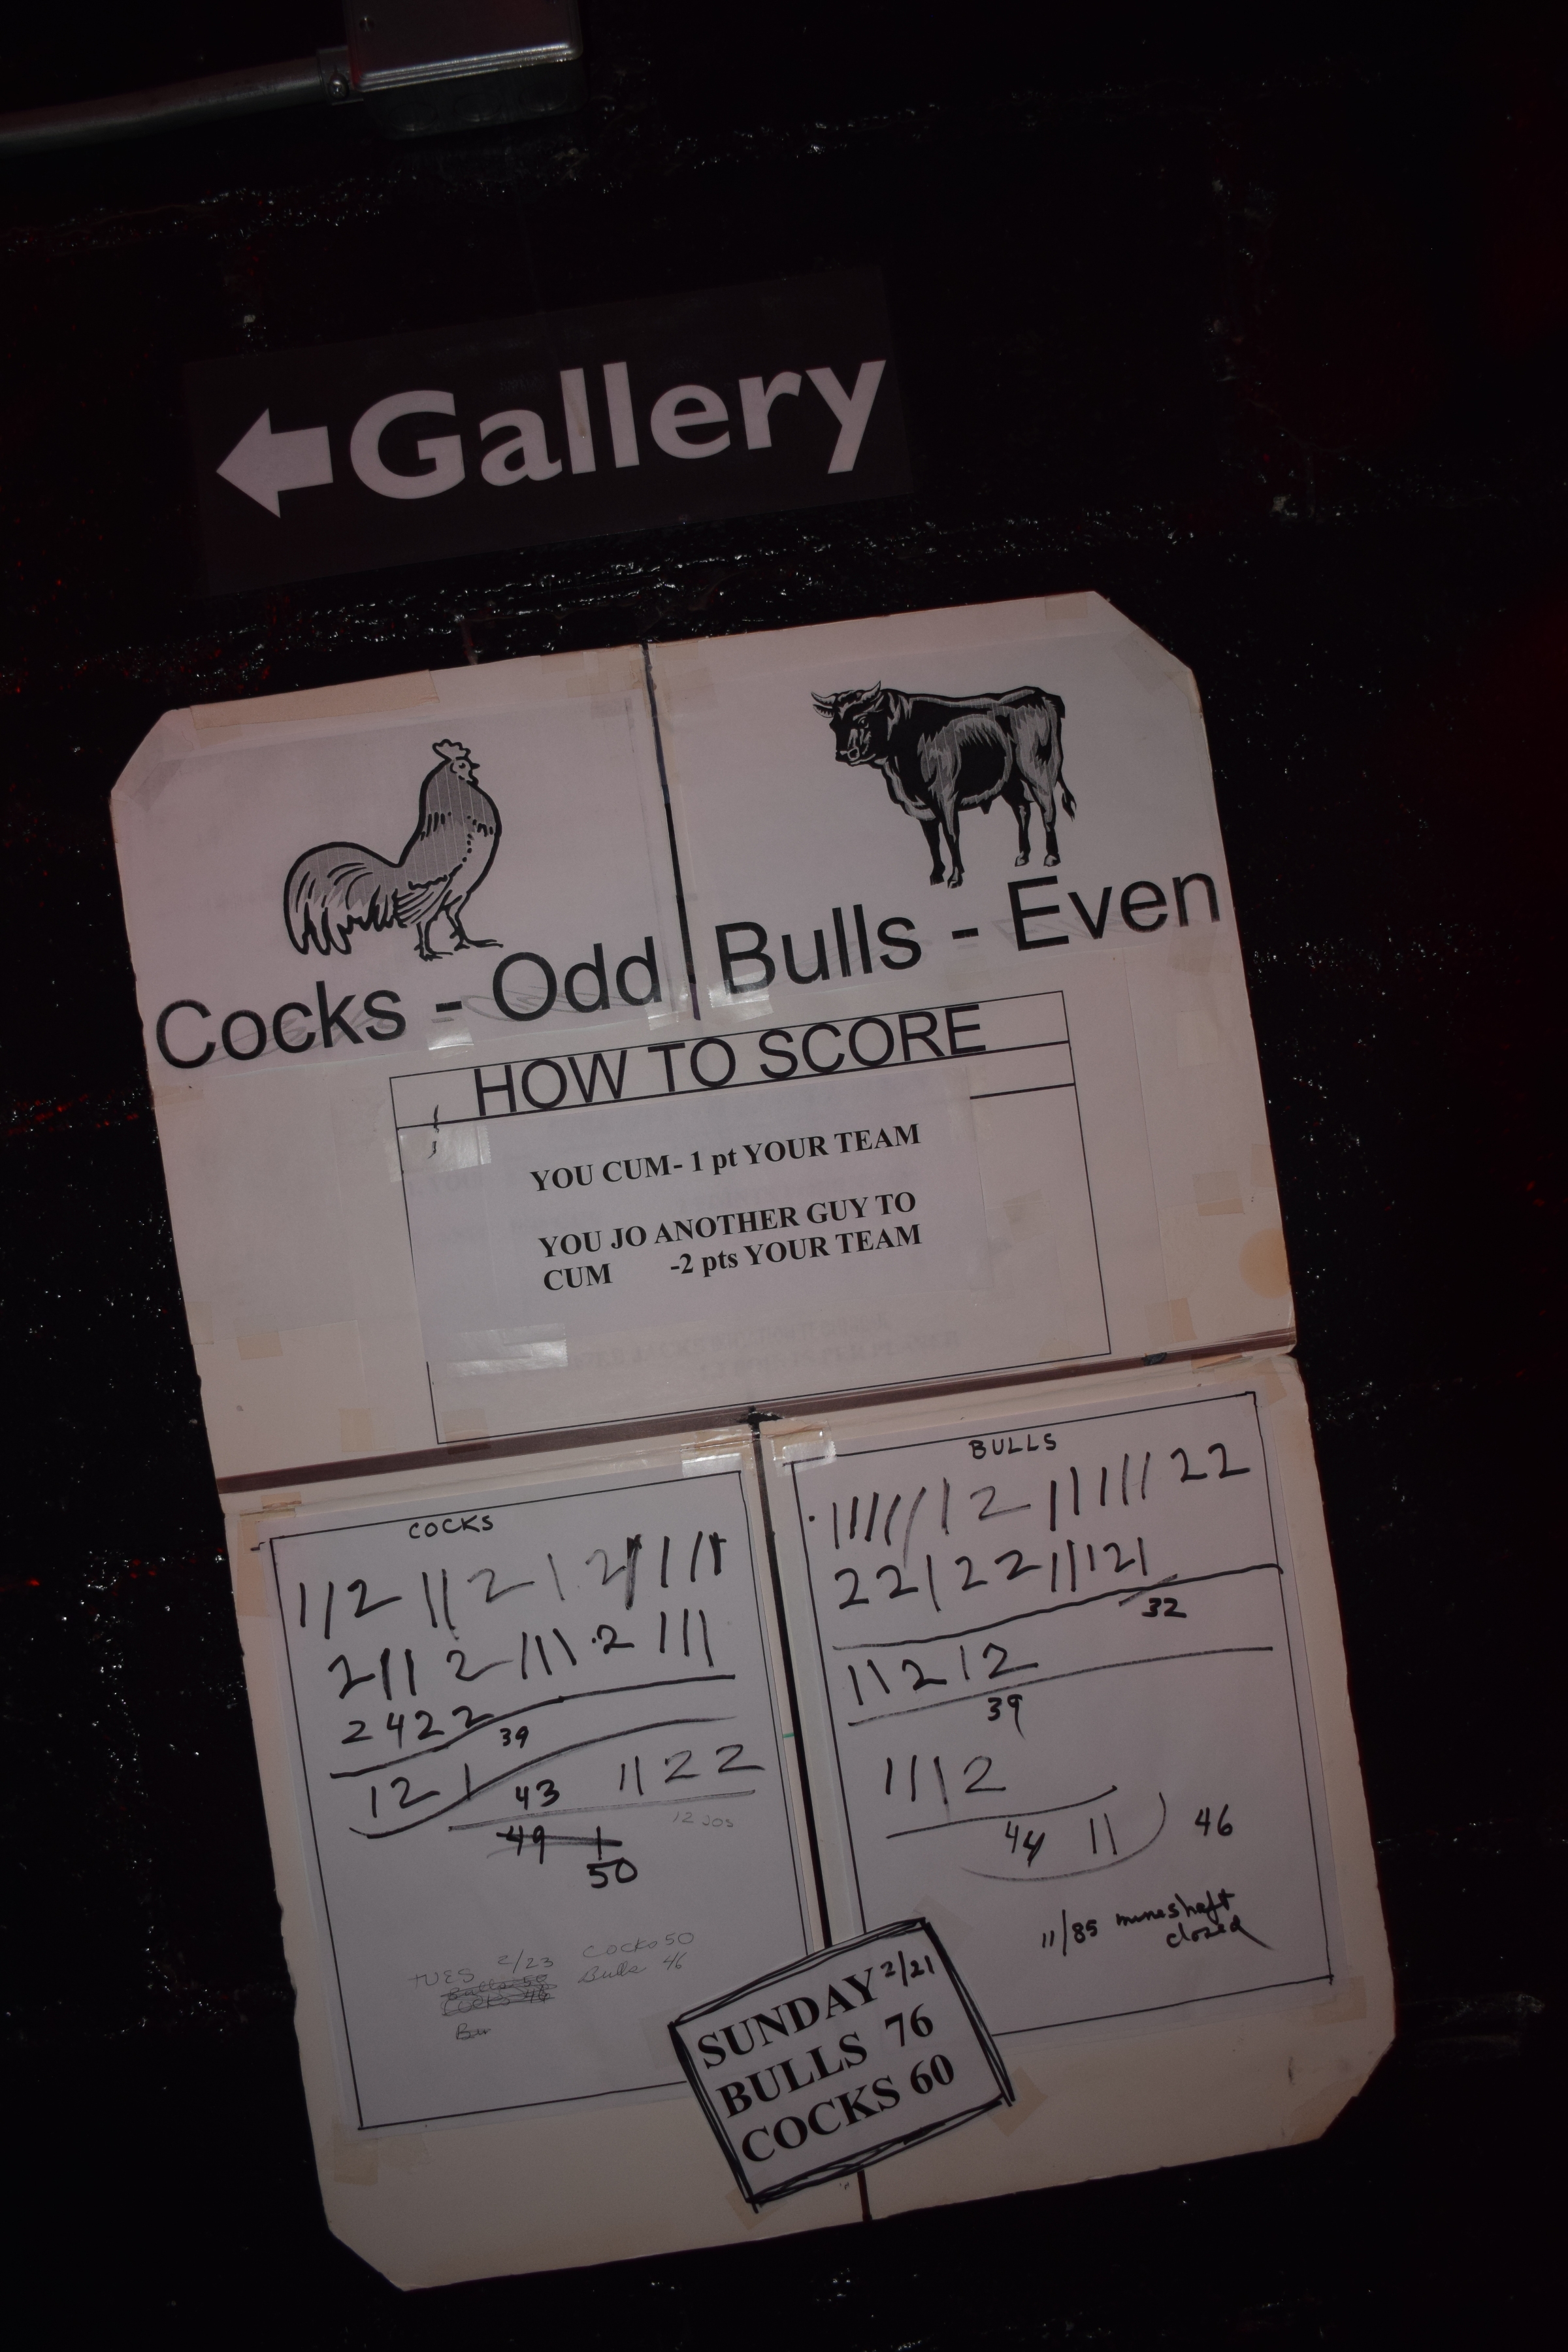 Gallery
Cocks - Odd
Bulls - Even
HOW TO SCORE
YOU CUM- 1 pt YOUR TEAM
YOU JO ANOTHER GUY TO
CUM -2 pts YOUR TEAM
COCKS
112 11 2 1 2 1 1 1 1
2 11 2 111 2 111
2 4 2 2
39
12 1
43
11 2 2
12 JOS
49 1
50
TUES 2/23
Cocks 50
Bulls 46
Bulls 50
Cocks 46
BULLS
1111111 2 111111 22
22 1 22 11121
32
112 12
39
1112
44 11
46
11/85 mineshaft
closed
SUNDAY 2/21
BULLS 76
COCKS 60